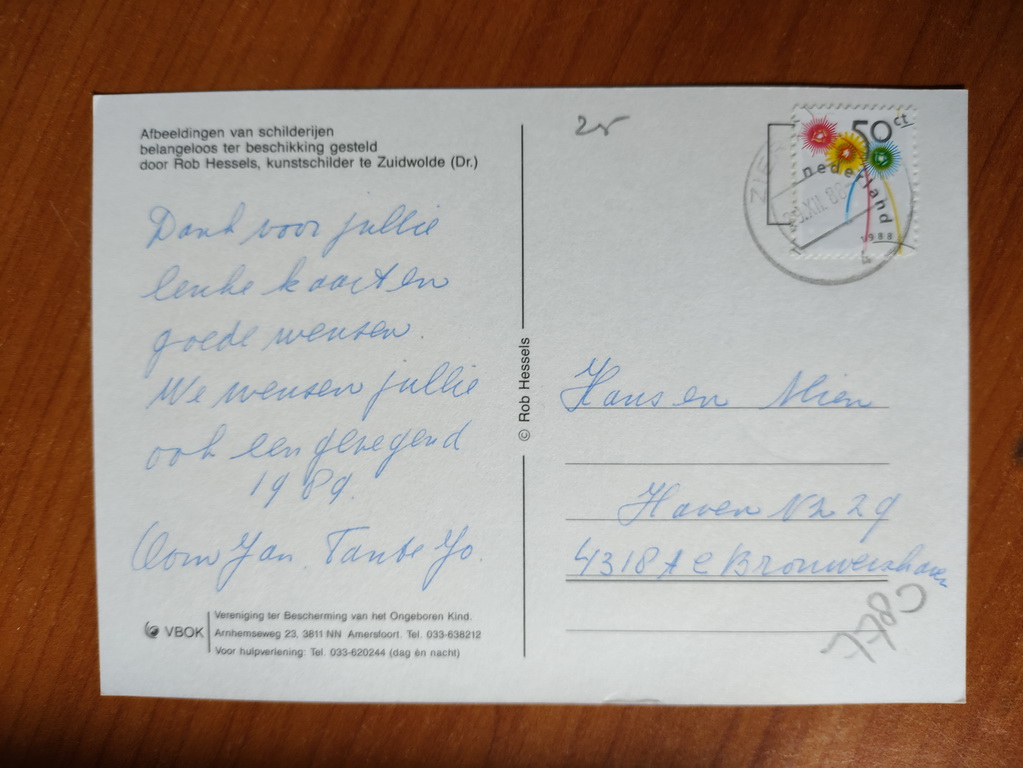 Afbeeldingen van schilderijen
belangeloos ter beschikking gesteld
door Rob Hessels, kunstschilder te Zuidwolde (Dr.)
Dank voor jullie
leuke kaart en
goede wensen.
We wensen jullie
ook een gezegend
1989.
Oom Jan. Tante Jo.
VBOK
Vereniging ter Bescherming van het Ongeboren Kind.
Arnhemseweg 23, 3811 NN Amersfoort. Tel. 033-638212
Voor hulpverlening: Tel. 033-620244 (dag én nacht)
© Rob Hessels
25
50 ct
nederland
1988
Hans en Mien
Haven Nz 29
4318 AC Brouwershaven